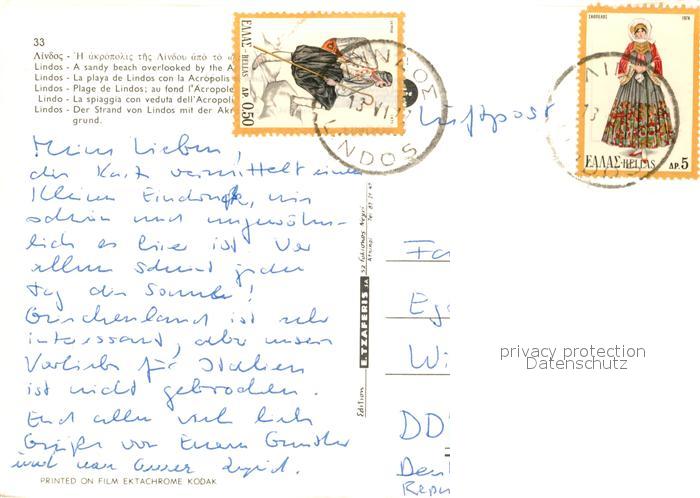 33
Λίνδος - Ἡ ἀκρόπολις τῆς Λίνδου ἀπὸ τὸ
Lindos - A sandy beach overlooked by the A
Lindos - La playa de Lindos con la Acrópolis
Lindos - Plage de Lindos; au fond l'Acropole
Lindo - La spiaggia con veduta dell'Acropoli
Lindos - Der Strand von Lindos mit der Akr
grund.
ΕΛΛΑΣ-HELLAS ΔΡ. 0,50
ΛΙΝΔΟΣ
13 VI
LINDOS
ΣΚΟΠΕΛΟΣ 1974
ΕΛΛΑΣ-HELLAS ΔΡ. 5
Luftpost
Meine Lieben,
die Karte vermittelt einen
kleinen Eindruck, wie
schön und ungewöhn-
lich es hier ist. Vor
allem scheint jeden
Tag die Sonne!
Griechenland ist sehr
interessant, aber unsere
Vorliebe für Italien
ist nicht gebrochen.
Euch allen viele liebe
Grüße von Eurem
und von
Edition E. TZAFERIS SA
Fa
Eg
Wi
DD
Deu
Repu
privacy protection
Datenschutz
PRINTED ON FILM EKTACHROME KODAK